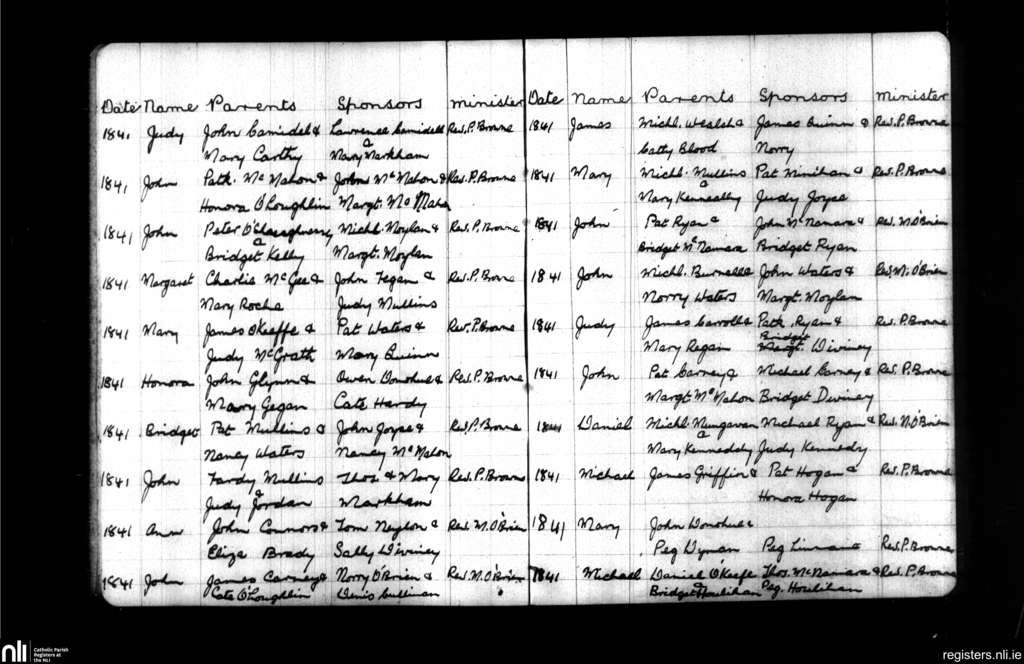 Date Name Parents Sponsors Minister
1841 Judy John Camidel & Lawrence Camidell Rev. P. Browne
Mary Carthy & Mary Markham
1841 John Patk. McMahon & John McMahon & Rev. P. Browne
Honora O'Loughlin Margt. McMahon
1841 John Peter Michl. Moylan & Rev. P. Browne
& Bridget Kelly Margt. Moylan
1841 Margaret Charlie McGee & John Fegan & Rev. P. Browne
Mary Roche Judy Mullins
1841 Mary James O'Keeffe & Pat Waters & Rev. P. Browne
Judy McGrath Mary Quinn
1841 Honora John Glynn & Owen Donohue & Rev. P. Browne
Mary Gegan Cate Hardy
1841 Bridget Pat Mullins & John Joyce & Rev. P. Browne
Nancy Waters Nancy McMahon
1841 John Fardy Mullins Thos. & Mary Rev. P. Browne
& Judy Jordan Markham
1841 Ann John Connors & Tom Neylon & Rev. M. O'Brien
Eliza Brady Sally Diviney
1841 John James Carney & Norry O'Brien & Rev. M. O'Brien
Cate O'Loughlin Denis Cullinan
Date Name Parents Sponsors Minister
1841 James Michl. Welsh & James Quinn & Rev. P. Browne
Catty Blood Norry
1841 Mary Michl. Mullins Pat Minihan & Rev. P. Browne
& Mary Kenneally Judy Joyce
1841 John Pat Ryan & John McNamara & Rev. M. O'Brien
Bridget McNamara Bridget Ryan
1841 John Michl. Burnelle John Waters & Rev. M. O'Brien
Norry Waters Margt. Moylan
1841 Judy James Carroll & Patk. Ryan & Rev. P. Browne
Mary Regan Bridget Margt. Diviney
1841 John Pat Carney & Michael Carney & Rev. P. Browne
Margt McMahon Bridget Diviney
1841 Daniel Michl. Mungavan Michael Ryan & Rev. M. O'Brien
& Mary Kenneddy Judy Kennedy
1841 Michael James Griffin & Pat Hogan & Rev. P. Browne
Honora Hogan
1841 Mary John Donohue &
Peg Wyman Peg Rev. P. Browne
1841 Michael Daniel O'Keefe Thos. McNamara & Rev. P. Browne
& Bridget Houlihan Peg. Houlihan
nli Catholic Parish
Registers at
the NLI
registers.nli.ie